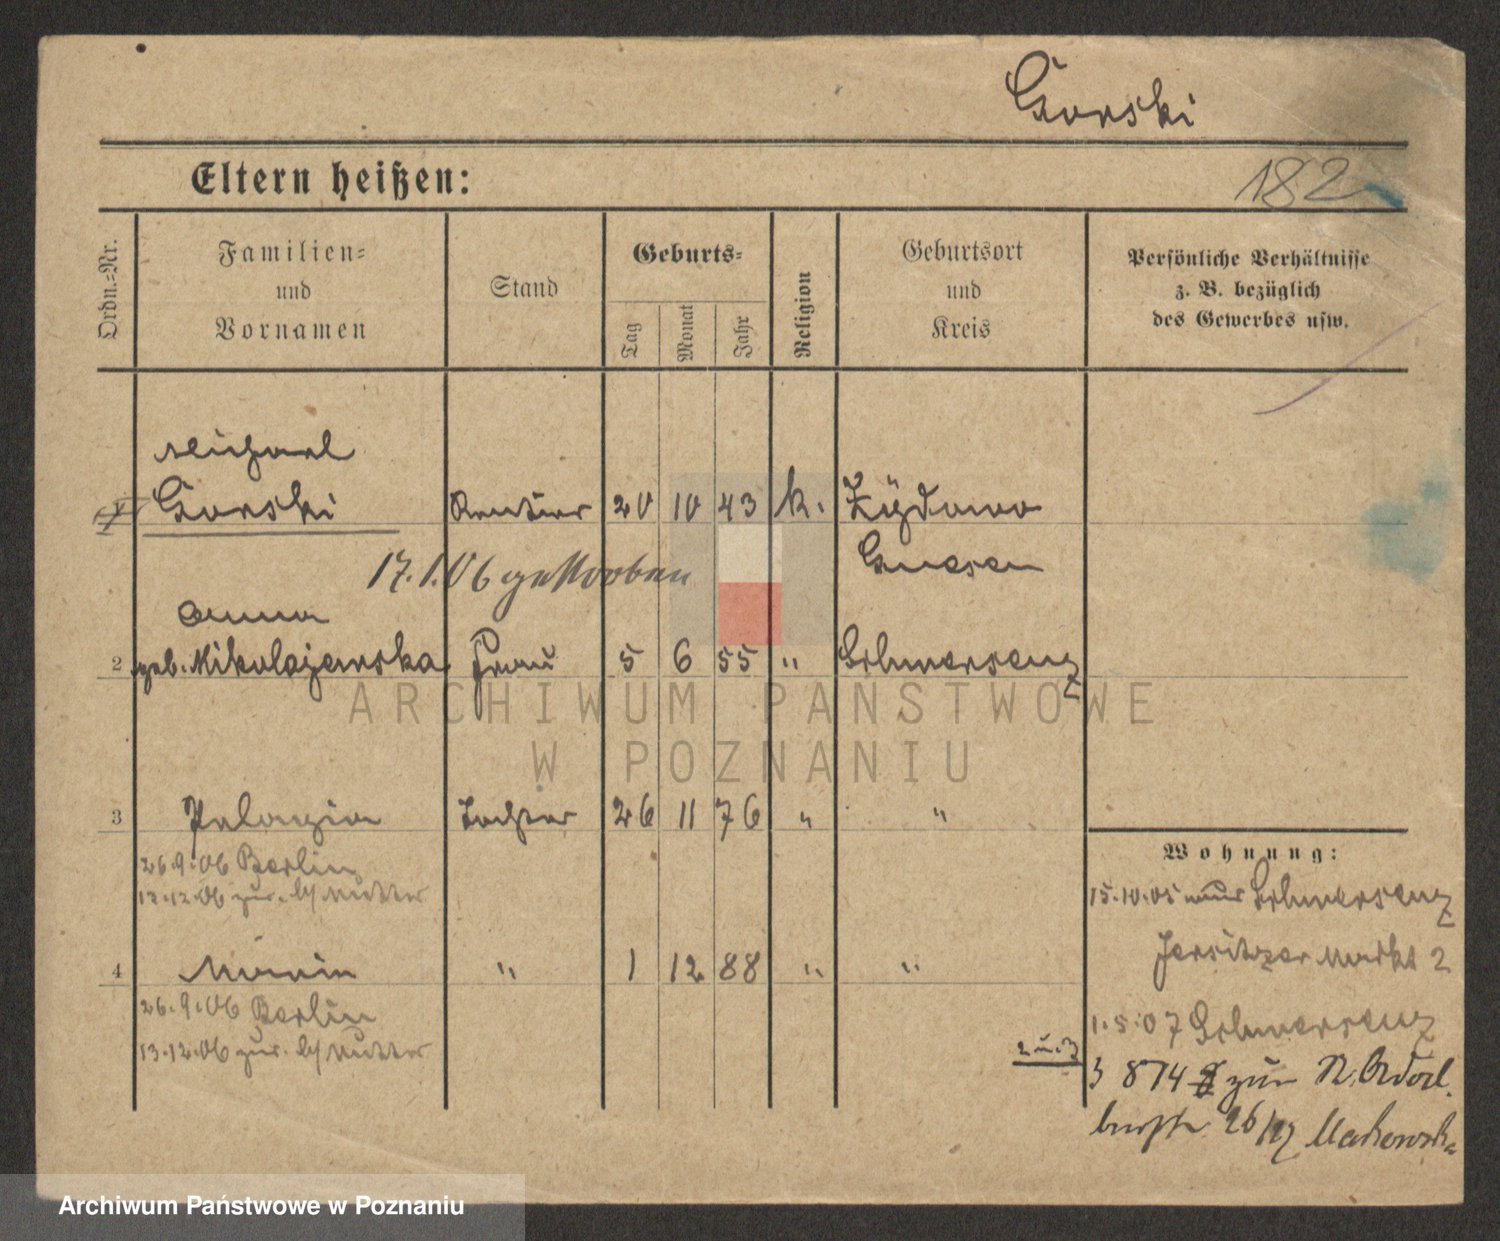 Gorski
Eltern heißen:
182
Ordn.-Nr.
Familien-
und
Vornamen
Stand
Geburts-
Tag
Monat
Jahr
Religion
Geburtsort
und
Kreis
Persönliche Verhältnisse
z. B. bezüglich
des Gewerbes usw.
Michael
1 Gorski Rentier 20 10 43 k. Zydowo
Gnesen
17.1.06 gestorben
Anna
2 geb. Mikolajewska Frau 5 6 55 " Schwersenz
3 Pelagia Tochter 26 11 76 " "
26.9.06 Berlin
13.12.06 zur. b/ Mutter
4 Maria " 1 12 88 " "
26.9.06 Berlin
13.12.06 zur. b/ Mutter
Wohnung:
15.10.05 aus Schwersenz
Jersitzer Markt 2
1.5.07 Schwersenz
2 u. 3
3 874 zur
26/ Makowska
ARCHIWUM PAŃSTWOWE
W POZNANIU
Archiwum Państwowe w Poznaniu